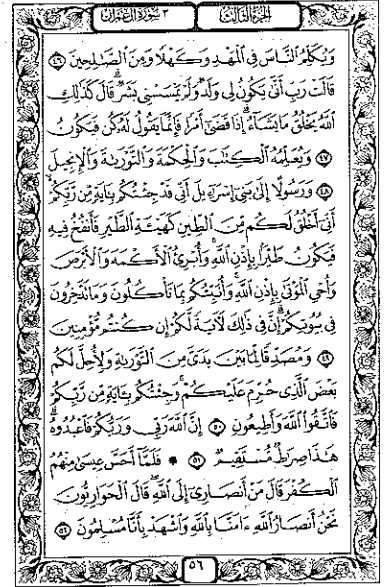 الجزء الثالث ٣ سورة آل عمران
وَيُكَلِّمُ النَّاسَ فِي الْمَهْدِ وَكَهْلًا وَمِنَ الصَّالِحِينَ ٤٦
قَالَتْ رَبِّ أَنَّى يَكُونُ لِي وَلَدٌ وَلَمْ يَمْسَسْنِي بَشَرٌ قَالَ كَذَلِكِ
اللَّهُ يَخْلُقُ مَا يَشَاءُ إِذَا قَضَى أَمْرًا فَإِنَّمَا يَقُولُ لَهُ كُن فَيَكُونُ
٤٧ وَيُعَلِّمُهُ الْكِتَابَ وَالْحِكْمَةَ وَالتَّوْرَاةَ وَالْإِنجِيلَ
٤٨ وَرَسُولًا إِلَى بَنِي إِسْرَائِيلَ أَنِّي قَدْ جِئْتُكُم بِآيَةٍ مِّن رَّبِّكُمْ
أَنِّي أَخْلُقُ لَكُم مِّنَ الطِّينِ كَهَيْئَةِ الطَّيْرِ فَأَنفُخُ فِيهِ
فَيَكُونُ طَيْرًا بِإِذْنِ اللَّهِ وَأُبْرِئُ الْأَكْمَهَ وَالْأَبْرَصَ
وَأُحْيِ الْمَوْتَى بِإِذْنِ اللَّهِ وَأُنَبِّئُكُم بِمَا تَأْكُلُونَ وَمَا تَدَّخِرُونَ
فِي بُيُوتِكُمْ إِنَّ فِي ذَلِكَ لَآيَةً لَّكُمْ إِن كُنتُم مُّؤْمِنِينَ
٤٩ وَمُصَدِّقًا لِّمَا بَيْنَ يَدَيَّ مِنَ التَّوْرَاةِ وَلِأُحِلَّ لَكُم
بَعْضَ الَّذِي حُرِّمَ عَلَيْكُمْ وَجِئْتُكُم بِآيَةٍ مِّن رَّبِّكُمْ
فَاتَّقُوا اللَّهَ وَأَطِيعُونِ ٥٠ إِنَّ اللَّهَ رَبِّي وَرَبُّكُمْ فَاعْبُدُوهُ
هَذَا صِرَاطٌ مُّسْتَقِيمٌ ٥١ ۞ فَلَمَّا أَحَسَّ عِيسَى مِنْهُمُ
الْكُفْرَ قَالَ مَنْ أَنصَارِي إِلَى اللَّهِ قَالَ الْحَوَارِيُّونَ
نَحْنُ أَنصَارُ اللَّهِ آمَنَّا بِاللَّهِ وَاشْهَدْ بِأَنَّا مُسْلِمُونَ ٥٢
٥٦